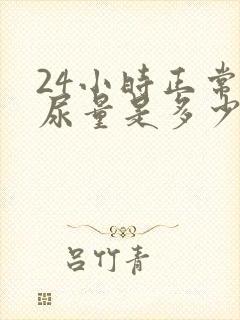 24小时正常
尿量是多少
吕竹青